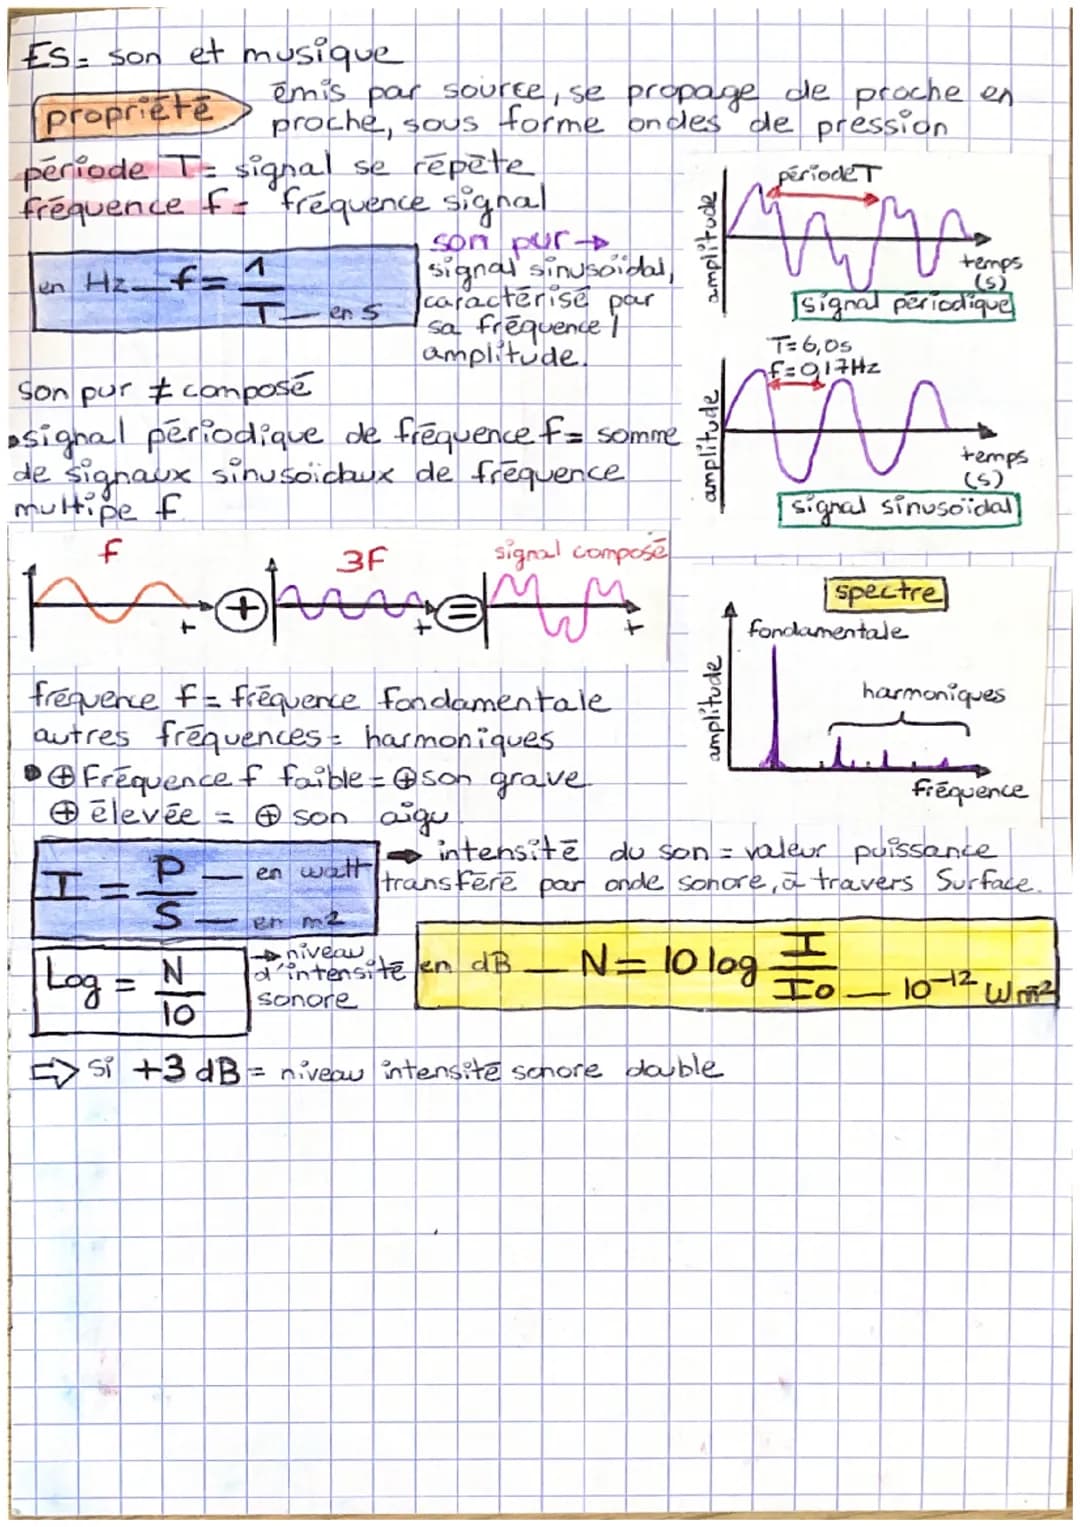 ES= son et musique
propriété
émis par source, se propage de proche en
proche, sous forme ondes de pression
période T= signal se répète
fréquence f= fréquence signal
en Hz — f = 1/T — en s
son pur →
signal sinusoïdal,
caractérisé par
sa fréquence /
amplitude.
période T
amplitude
temps
(s)
signal périodique
T=6,0s
f=0,17Hz
amplitude
temps
(s)
signal sinusoïdal
son pur ≠ composé
•signal périodique de fréquence f= somme
de signaux sinusoïdaux de fréquence
multipe f
f
3F
signal composé
t
+
t
=
t
spectre
fondamentale
harmoniques
amplitude
fréquence
fréquence f= fréquence fondamentale
autres fréquences= harmoniques
• ⊕ Fréquence f faible= ⊕ son grave
⊕ élevée = ⊕ son aigu
I = P/S — en watt — en m2
➡ intensité du son = valeur puissance
transféré par onde sonore, à travers Surface.
Log = N/10
→ niveau
d'intensité
sonore
en dB — N= 10 log I/I0 — 10⁻¹² W m²
⇒ si +3 dB = niveau intensité sonore double